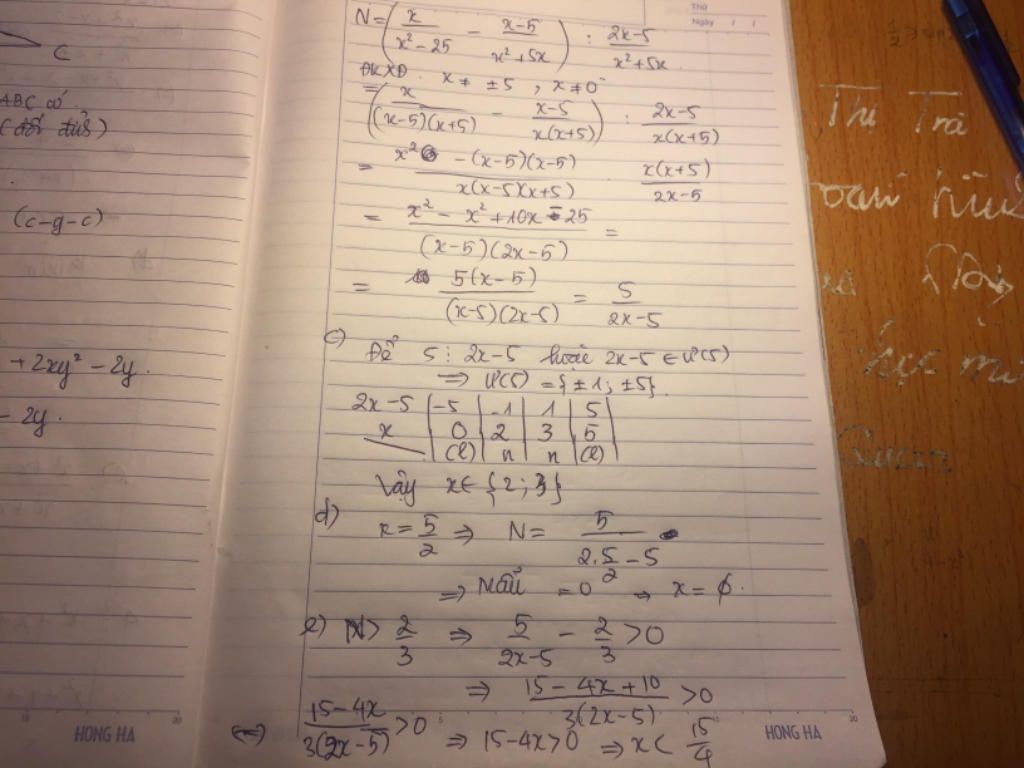 C
ABC có
(đối đỉnh)
(c-g-c)
+ 2xy² - 2y.
- 2y.
HONG HA
Thứ
Ngày / /
N = (x/(x² - 25) - (x-5)/(x² + 5x)) : (2x-5)/(x² + 5x)
ĐKXĐ. x ≠ ±5, x ≠ 0
= (x/((x-5)(x+5)) - (x-5)/(x(x+5))) : (2x-5)/(x(x+5))
= (x² - (x-5)(x-5))/(x(x-5)(x+5)) x(x+5)/(2x-5)
= (x² - x² + 10x - 25)/((x-5)(2x-5)) =
= 5(x-5)/((x-5)(2x-5)) = 5/(2x-5)
c)
Để 5 ⋮ 2x-5 hoặc 2x-5 ∈ Ư(5)
=> Ư(5) = {±1; ±5}
2x-5 | -5 | -1 | 1 | 5
x | 0 | 2 | 3 | 5
(l) | n | n | (l)
Vậy x ∈ {2; 3}
d) x = 5/2 => N = 5/(2.5/2 - 5)
=> Mẫu = 0 → x = ∅.
e) N > 2/3 => 5/(2x-5) - 2/3 > 0
=> (15 - 4x + 10)/(3(2x-5)) > 0
(=) (15 - 4x)/(3(2x-5)) > 0 => 15 - 4x > 0 => x < 15/4
HONG HA
Thi Trà